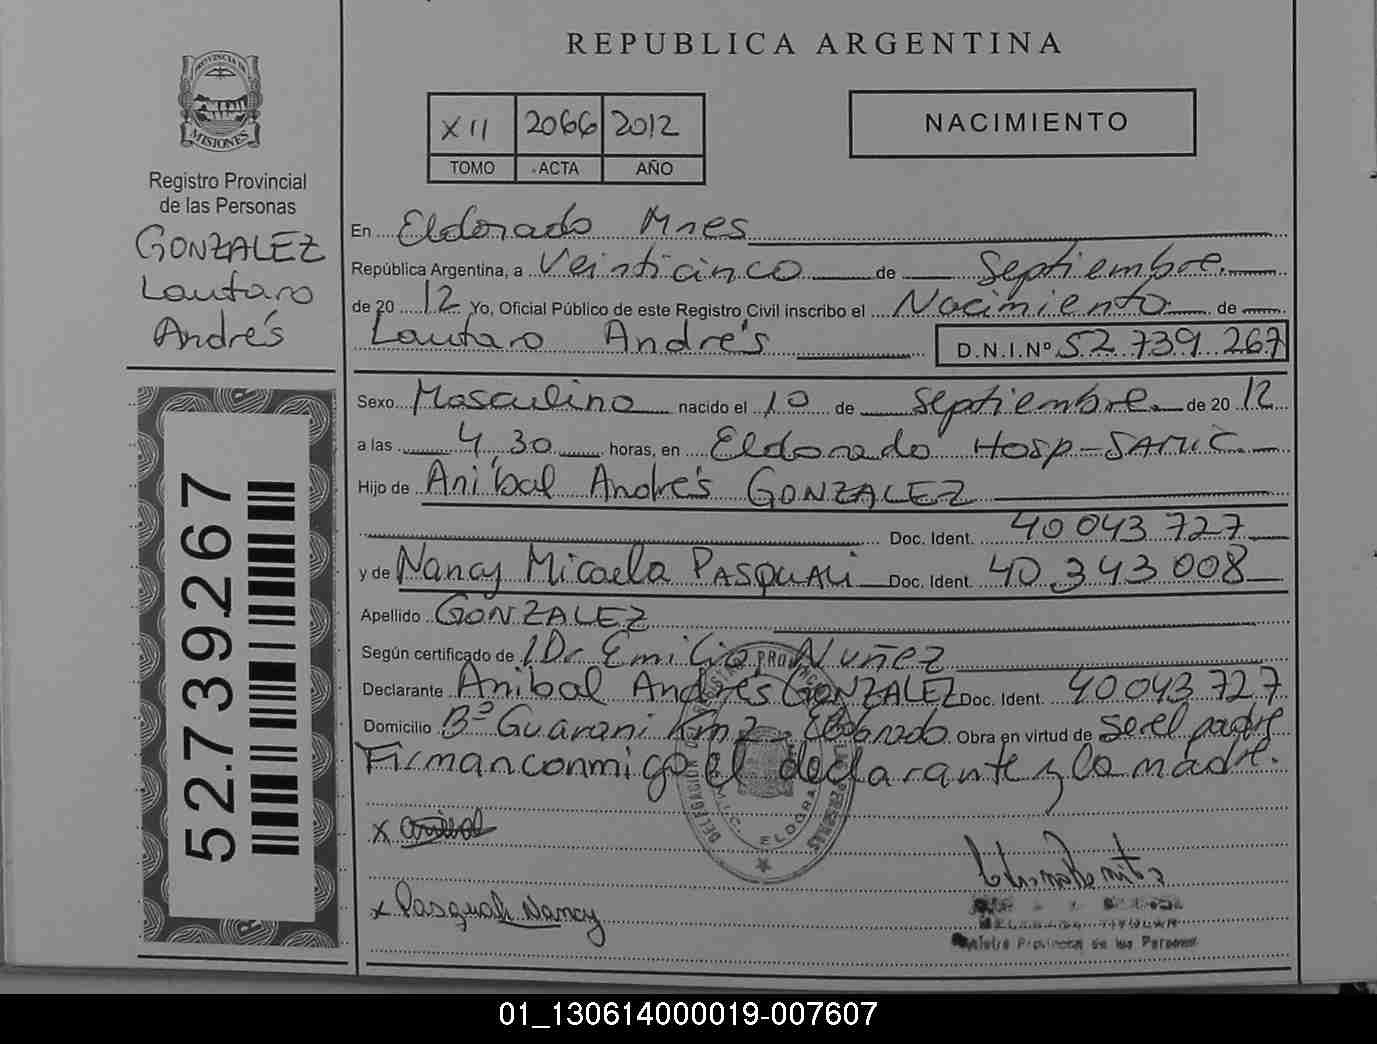 REPUBLICA ARGENTINA
XII 2066 2012
TOMO ACTA AÑO
NACIMIENTO
PROVINCIA DE
MISIONES
Registro Provincial
de las Personas
GONZALEZ
Lautaro
Andrés
52.739.267
En Eldorado Mnes
República Argentina, a Veinticinco de Septiembre
de 20 12 Yo, Oficial Público de este Registro Civil inscribo el Nacimiento de
Lautaro Andrés D.N.I.Nº 52 739 267
Sexo Masculino nacido el 10 de septiembre de 20 12
a las 4,30 horas, en Eldorado Hosp-SAMIC
Hijo de Aníbal Andrés GONZALEZ
Doc. Ident. 40 043 727
y de Nancy Micaela PASQUALI Doc. Ident. 40 343 008
Apellido GONZALEZ
Según certificado de Dr Emilio Nuñez
Declarante Anibal Andrés GONZALEZ Doc. Ident. 40 043 727
Domicilio Bº Guarani Km 2 - Eldorado Obra en virtud de ser el padre
Firman conmigo el declarante y la madre.
x anibal
x Pasquali Nancy
DELEGACION
TITULAR
Registro Provincial de las Personas
01_130614000019-007607